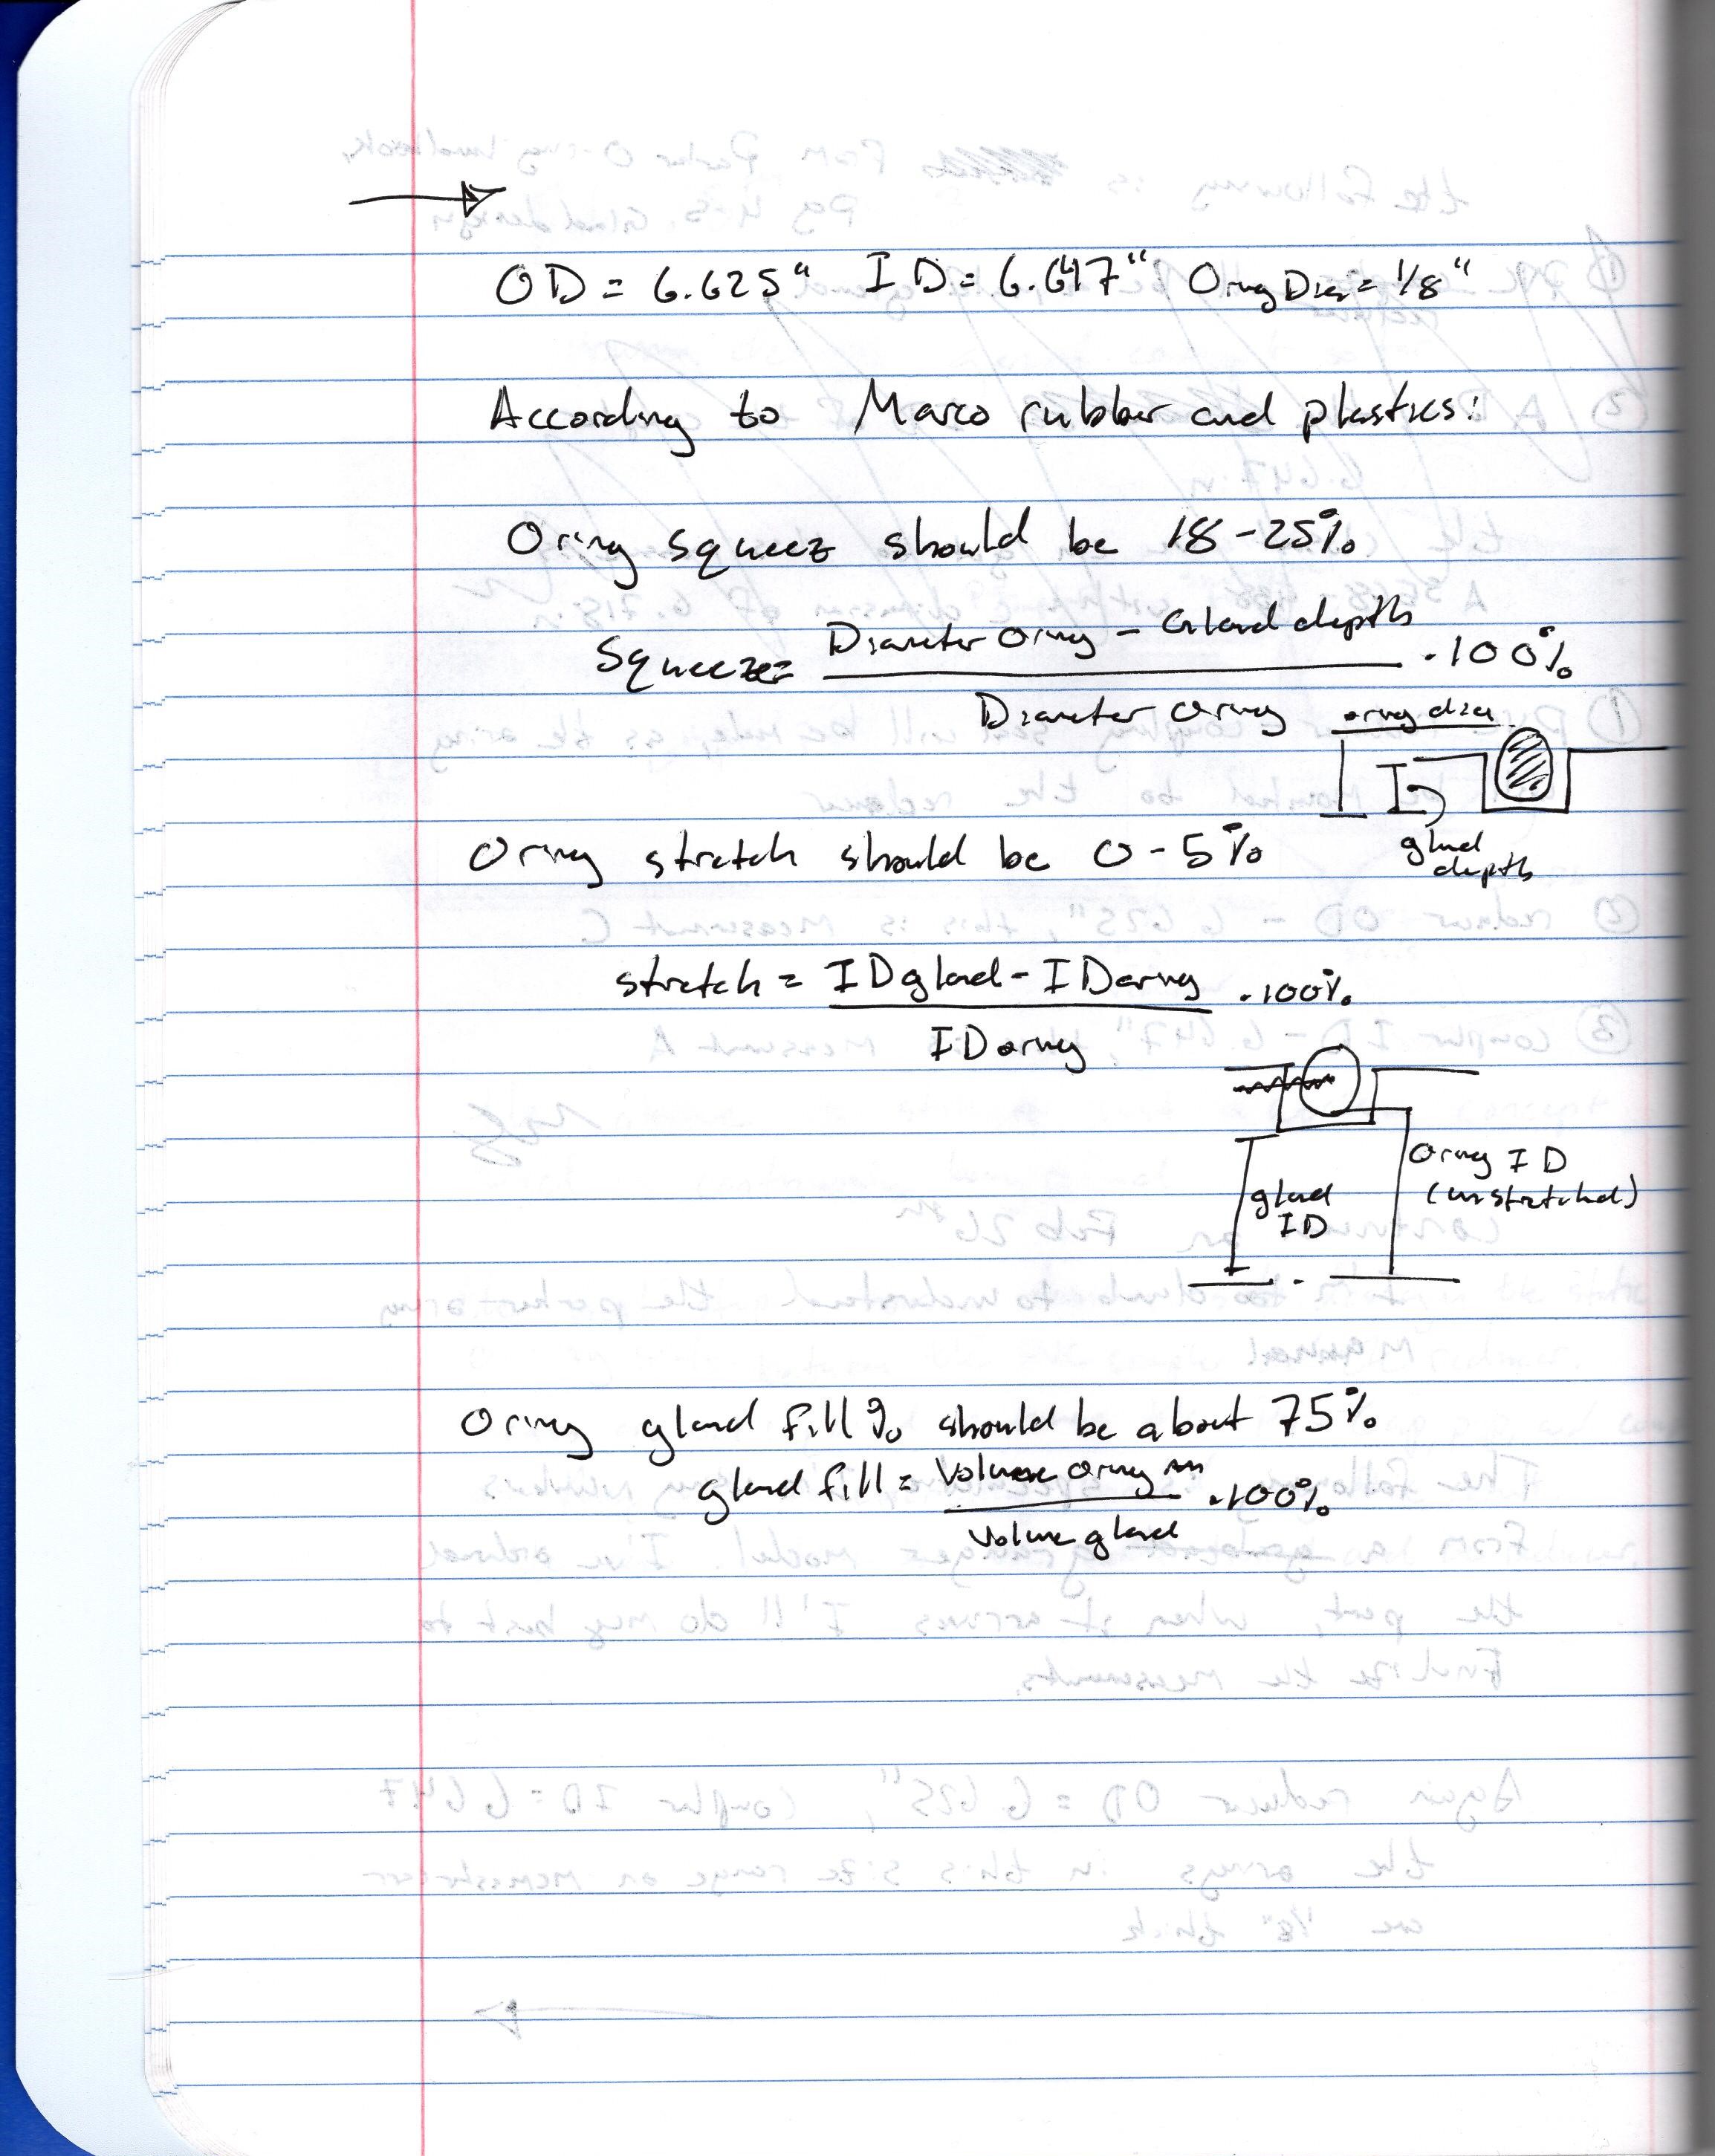 OD = 6.625" ID = 6.647" Oring Dia = 1/8"
According to Marco rubber and plastics:
Oring squeez should be 18-25%
Squeeze = Diameter Oring - Gland depth / Diameter oring · 100%
oring dia
gland
depth
Oring stretch should be 0-5%
stretch = ID gland - ID oring / ID oring · 100%
gland
ID
Oring ID
(unstretched)
Oring gland fill % should be about 75%
gland fill = Volume oring / Volume gland · 100%